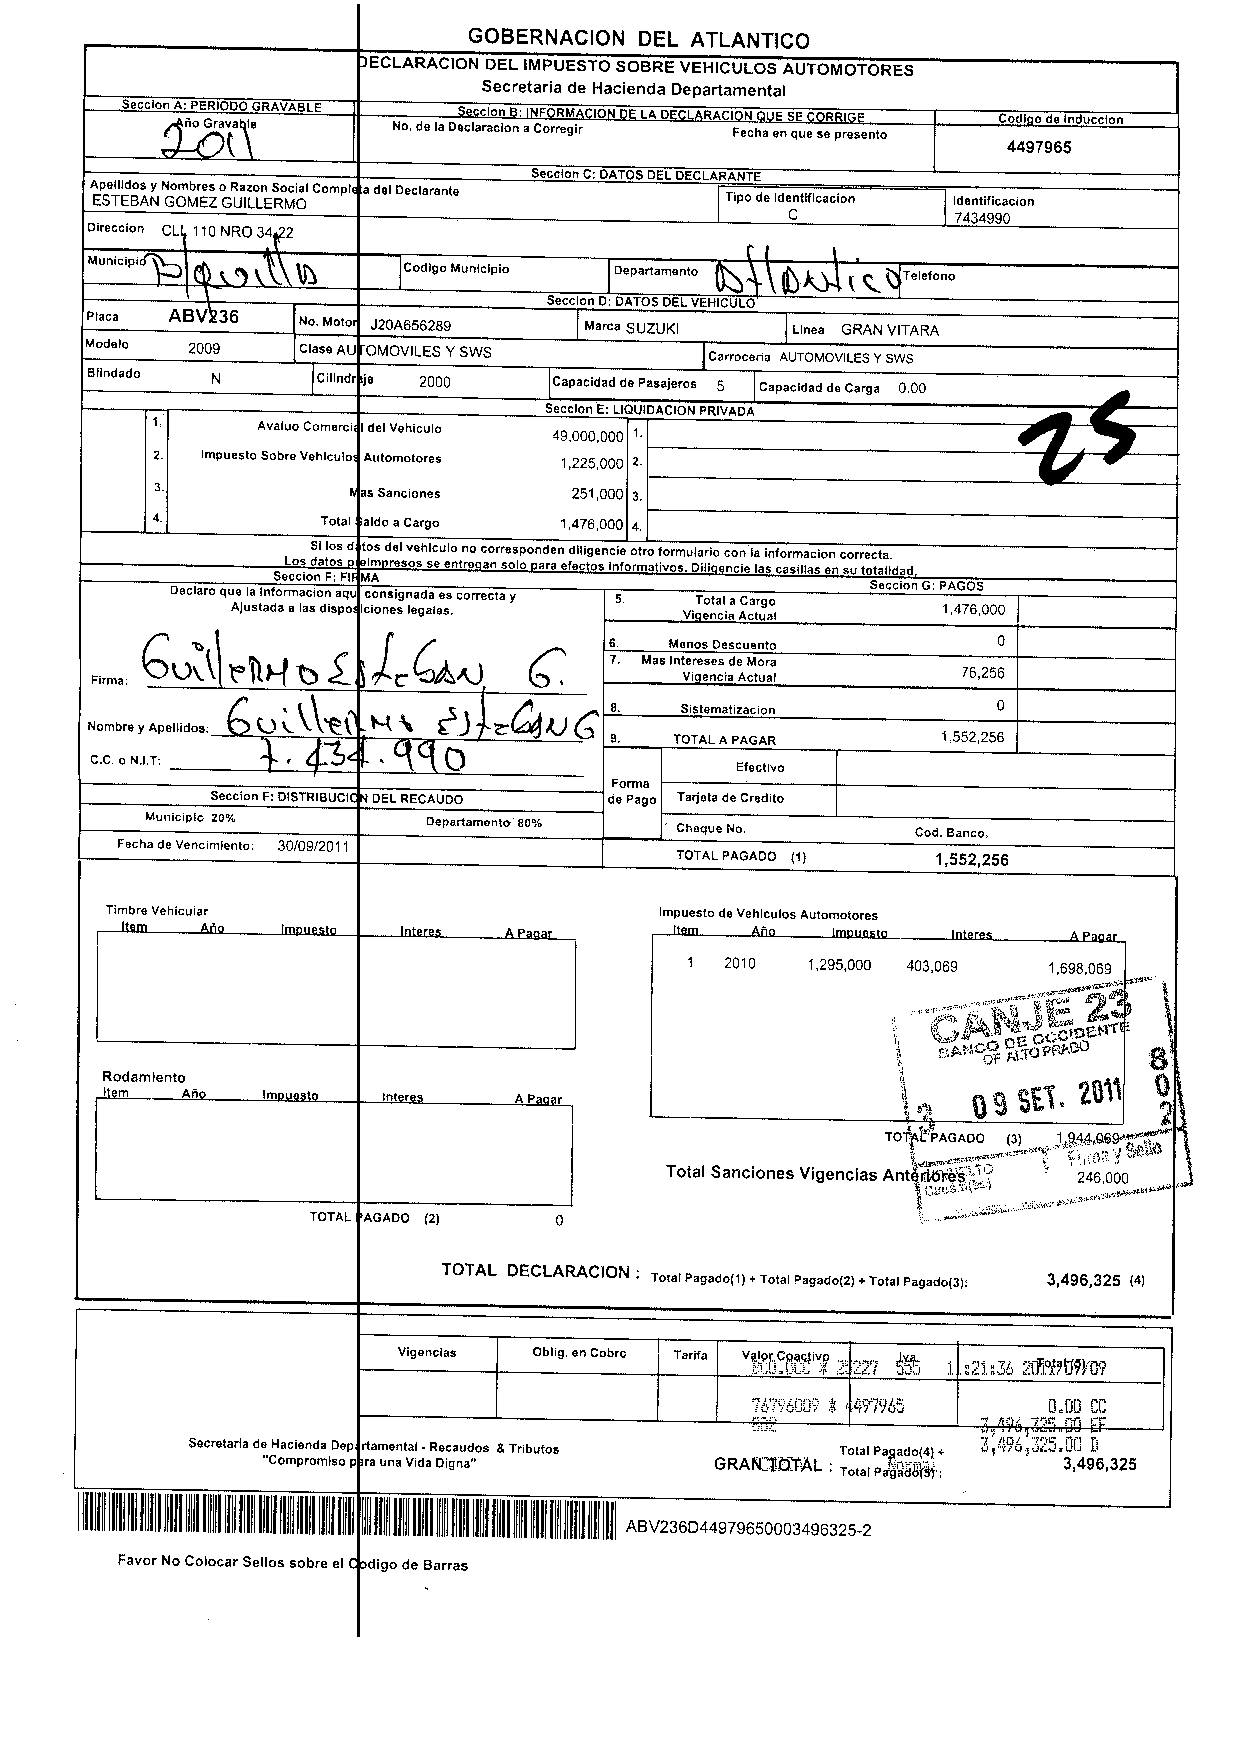 GOBERNACION DEL ATLANTICO
DECLARACION DEL IMPUESTO SOBRE VEHICULOS AUTOMOTORES
Secretaria de Hacienda Departamental
Seccion A: PERIODO GRAVABLE
Seccion B: INFORMACION DE LA DECLARACION QUE SE CORRIGE
Codigo de induccion
Año Gravable
2011
No. de la Declaracion a Corregir
Fecha en que se presento
4497965
Seccion C: DATOS DEL DECLARANTE
Apellidos y Nombres o Razon Social Completa del Declarante
ESTEBAN GOMEZ GUILLERMO
Tipo de Identificacion
C
Identificacion
7434990
Direccion CLL 110 NRO 34 22
Municipio B/quilla
Codigo Municipio
Departamento Atlantico
Telefono
Seccion D: DATOS DEL VEHICULO
Placa ABV236
No. Motor J20A656289
Marca SUZUKI
Linea GRAN VITARA
Modelo 2009
Clase AUTOMOVILES Y SWS
Carroceria AUTOMOVILES Y SWS
Blindado N
Cilindraje 2000
Capacidad de Pasajeros 5
Capacidad de Carga 0.00
Seccion E: LIQUIDACION PRIVADA
25
1. Avaluo Comercial del Vehiculo 49,000,000 1.
2. Impuesto Sobre Vehiculos Automotores 1,225,000 2.
3. Mas Sanciones 251,000 3.
4. Total Saldo a Cargo 1,476,000 4.
Si los datos del vehiculo no corresponden diligencie otro formulario con la informacion correcta.
Los datos preimpresos se entregan solo para efectos informativos. Diligencie las casillas en su totalidad.
Seccion F: FIRMA
Seccion G: PAGOS
Declaro que la informacion aqui consignada es correcta y
Ajustada a las disposiciones legales.
5. Total a Cargo
Vigencia Actual 1,476,000
6. Menos Descuento 0
7. Mas Intereses de Mora
Vigencia Actual 76,256
Firma: Guillermo Esteban G.
8. Sistematizacion 0
Nombre y Apellidos: Guillermo Esteban G
9. TOTAL A PAGAR 1,552,256
C.C. o N.I.T: 7.434.990
Forma
de Pago
Efectivo
Tarjeta de Credito
Cheque No.
Cod. Banco.
Seccion F: DISTRIBUCION DEL RECAUDO
Municipio 20%
Departamento 80%
Fecha de Vencimiento: 30/09/2011
TOTAL PAGADO (1) 1,552,256
Timbre Vehicular
Item Año Impuesto Interes A Pagar
Impuesto de Vehiculos Automotores
Item Año Impuesto Interes A Pagar
1 2010 1,295,000 403,069 1,698,069
CANJE 23
BANCO DE OCCIDENTE
OF ALTO PRADO
09 SET. 2011
802
Firma y Sello
Rodamiento
Item Año Impuesto Interes A Pagar
TOTAL PAGADO (3) 1,944,069
Total Sanciones Vigencias Anteriores 246,000
TOTAL PAGADO (2) 0
TOTAL DECLARACION : Total Pagado(1) + Total Pagado(2) + Total Pagado(3): 3,496,325 (4)
Vigencias
Oblig. en Cobro
Tarifa
Valor Coactivo
Iva
Total(5)
76796009 * 4497965 0.00 CC
3,496,325.00 EF
3,496,325.00 D
Secretaria de Hacienda Departamental - Recaudos & Tributos
"Compromiso para una Vida Digna"
GRAN TOTAL : Total Pagado(4) +
Total Pagado(5) : 3,496,325
ABV236D44979650003496325-2
Favor No Colocar Sellos sobre el Codigo de Barras